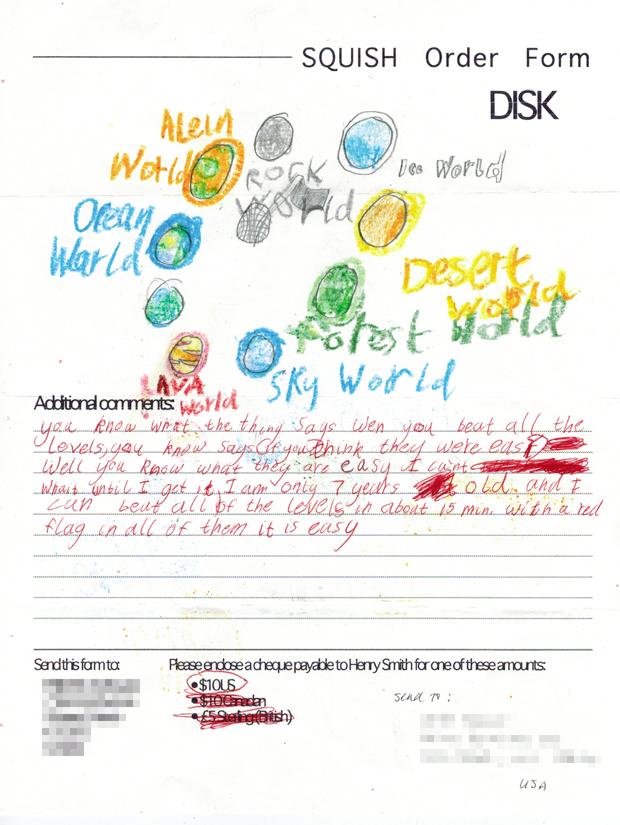 SQUISH Order Form
DISK
ALein
World
ROCK
World
Ice World
Ocean
World
Desert
World
Forest World
LAVA
World
SKy World
Additional comments:
you know what the thing says wen you beat all the
levels, you know says (if you think they were easy)
Well you know what they are easy I cant
Whait until I get it, I am only 7 years old and I
can beat all of the levels in about 15 min. with a red
flag in all of them it is easy
Send this form to:
Please enclose a cheque payable to Henry Smith for one of these amounts:
•$10US
•$10 Canadian
•£5 Sterling (British)
SEND TO:
USA